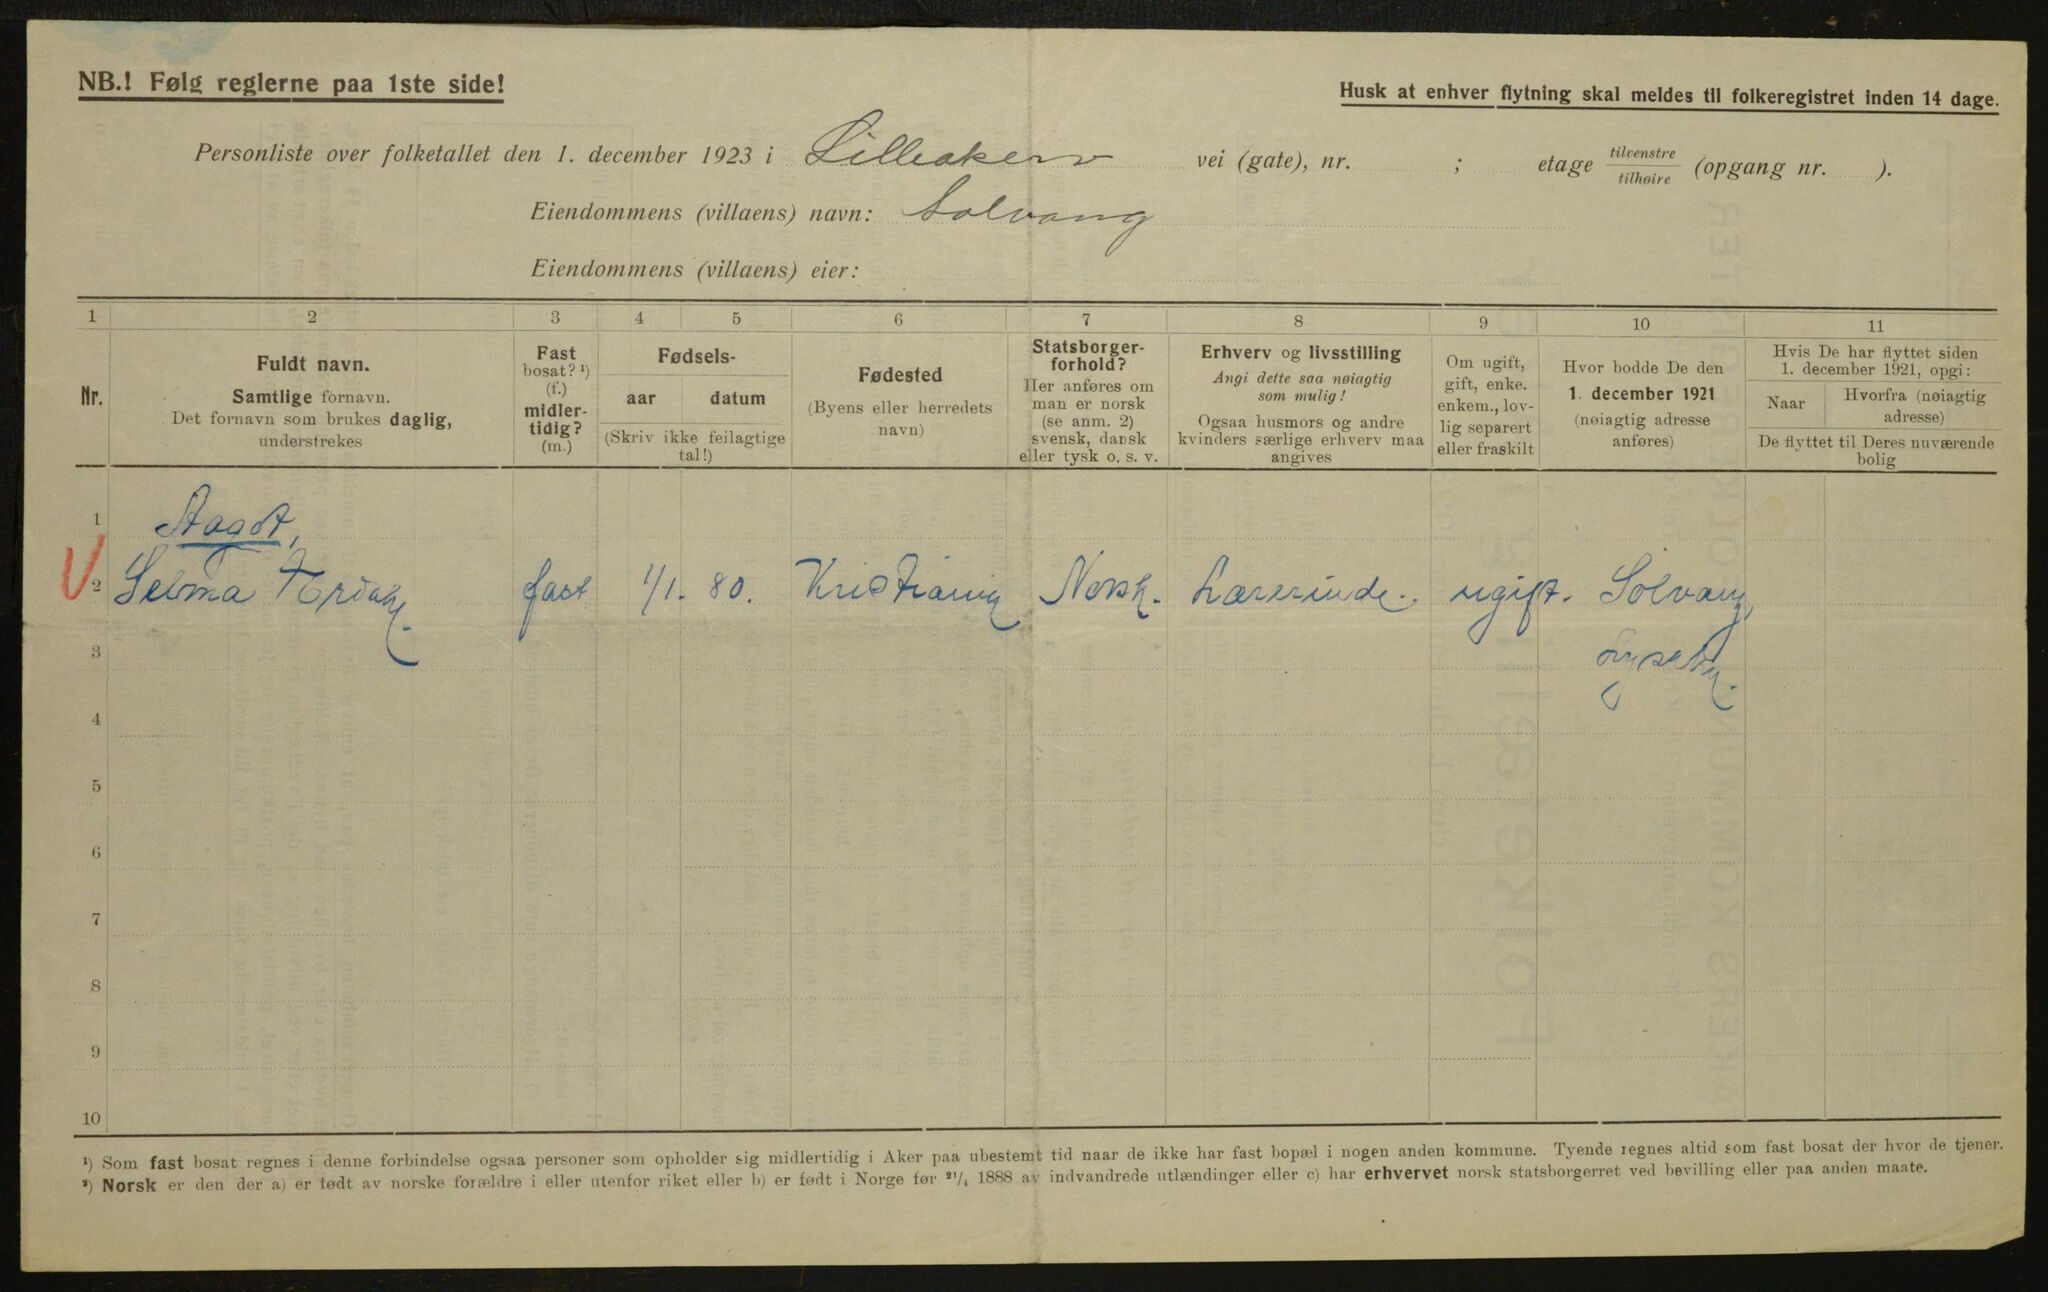 NB.! Følg reglerne paa 1ste side!
Husk at enhver flytning skal meldes til folkeregistret inden 14 dage.
Personliste over folketallet den 1. december 1923 i Lilleakerv vei (gate), nr. ; etage tilvenstre/tilhøire (opgang nr. ).
Eiendommens (villaens) navn: Solvang
Eiendommens (villaens) eier:
1 2 3 4 5 6 7 8 9 10 11
Nr.
Fuldt navn.
Samtlige fornavn.
Det fornavn som brukes daglig,
understrekes
Fast
bosat? ¹)
(f.)
midler-
tidig?
(m.)
Fødsels-
aar datum
(Skriv ikke feilagtige
tal!)
Fødested
(Byens eller herredets
navn)
Statsborger-
forhold?
Her anføres om
man er norsk
(se anm. 2)
svensk, dansk
eller tysk o. s. v.
Erhverv og livsstilling
Angi dette saa nøiagtig
som mulig!
Ogsaa husmors og andre
kvinders særlige erhverv maa
angives
Om ugift,
gift, enke.
enkem., lov-
lig separert
eller fraskilt
Hvor bodde De den
1. december 1921
(nøiagtig adresse
anføres)
Hvis De har flyttet siden
1. december 1921, opgi:
Naar
Hvorfra (nøiagtig
adresse)
De flyttet til Deres nuværende
bolig
1 Aagot,
2 Selma fast 1/1. 80. Kristiania Norsk. Lærerinde. ugift. Solvang,
3
4
5
6
7
8
9
10
¹) Som fast bosat regnes i denne forbindelse ogsaa personer som opholder sig midlertidig i Aker paa ubestemt tid naar de ikke har fast bopæl i nogen anden kommune. Tyende regnes altid som fast bosat der hvor de tjener.
²) Norsk er den der a) er født av norske forældre i eller utenfor riket eller b) er født i Norge før ²¹/₄ 1888 av indvandrede utlændinger eller c) har erhvervet norsk statsborgerret ved bevilling eller paa anden maate.